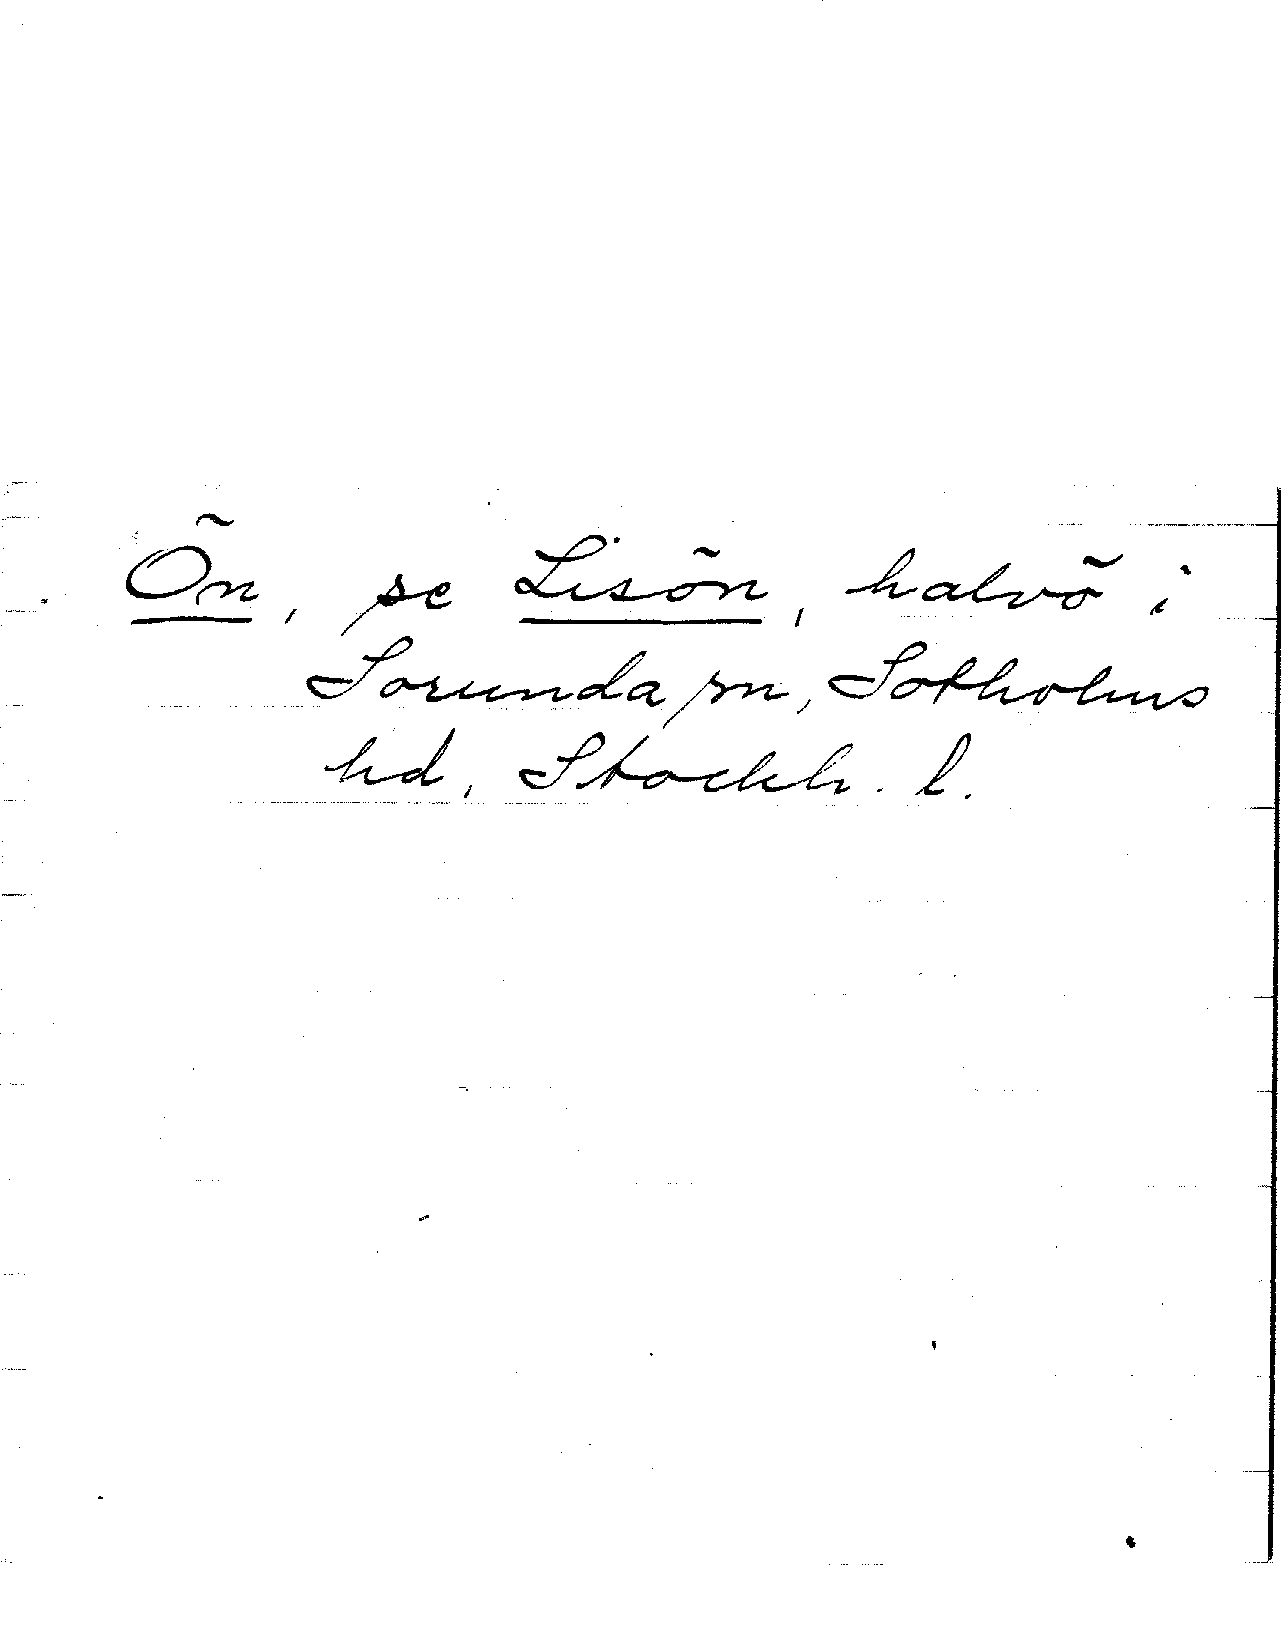 Ön, se Lisön, halvö i
Sorunda sn, Sotholms
hd, Stockh. l.